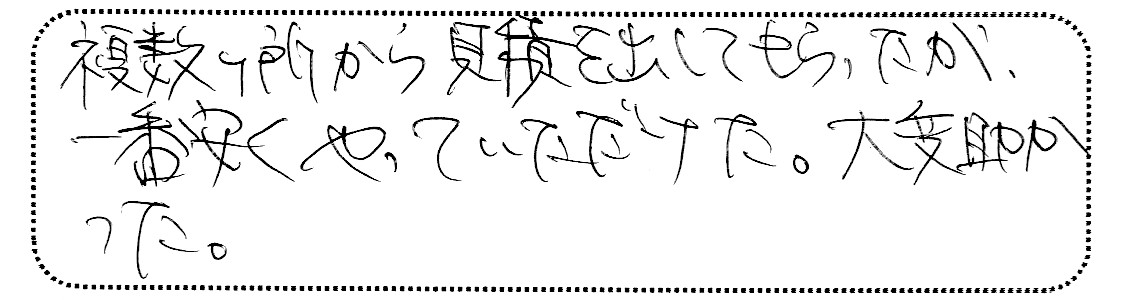 複数ヶ所から見積を出してもらったが、
一番安くやっていただけた。大変助か
った。